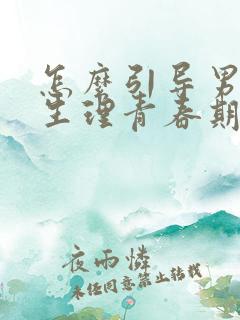 怎麽引导男
生理青春期
夜雨憐
未经同意禁止转载